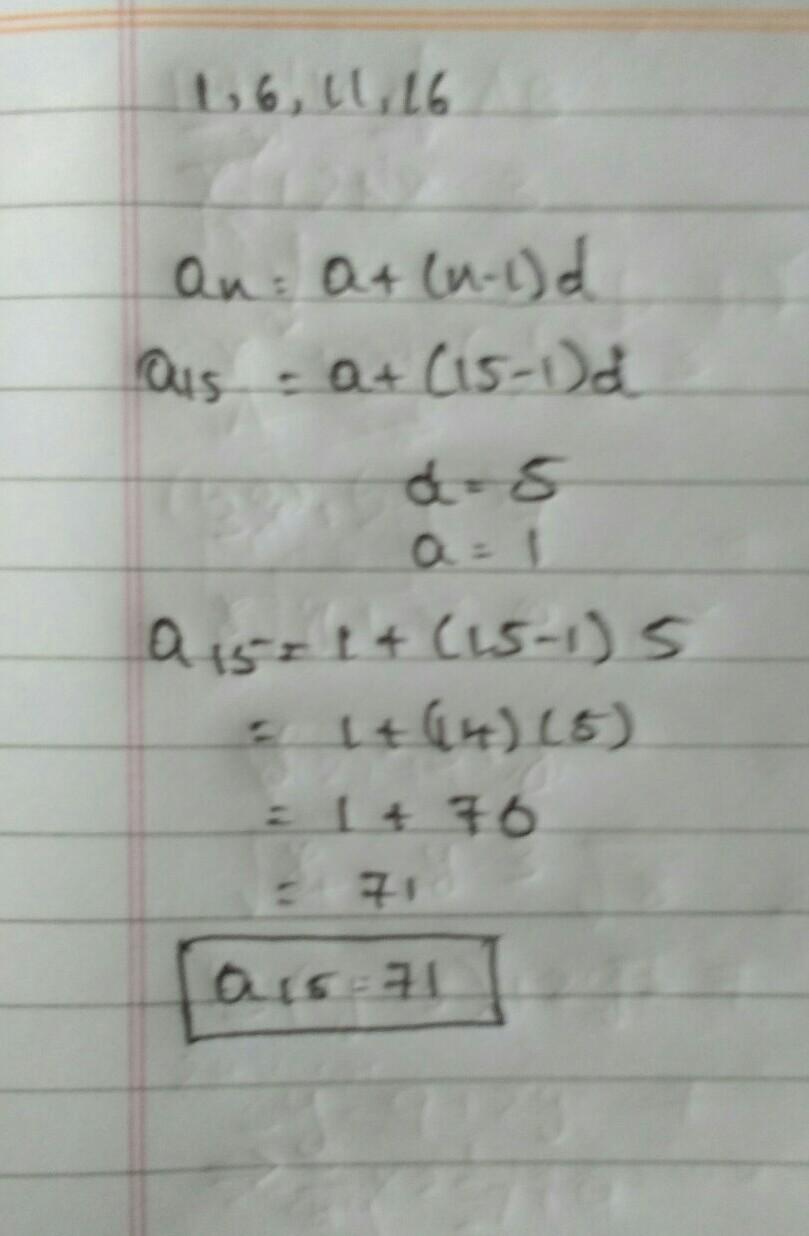 1, 6, 11, 16
an = a + (n-1)d
a15 = a + (15-1)d
d = 5
a = 1
a15 = 1 + (15-1) 5
= 1 + (14) (5)
= 1 + 70
= 71
a15 = 71